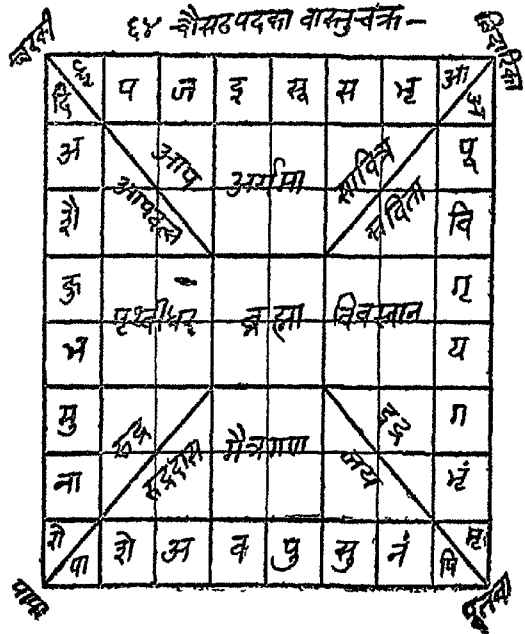 ६४ चौसठ पदका वास्तुचक्र
चरकी विदारिका
दि प ज इ सू स भृ आ
अ आप अर्यमा सावित्र पू
शै आपवत्स सविता वि
कु पृथ्वीधर ब्रह्मा विवस्वान गृ
भ य
मु रुद्र मैत्रगण इंद्र ग
ना रुद्रदास जय भृं
रो पा शे अ व पु सु नं पि मृ
पापा पूतना